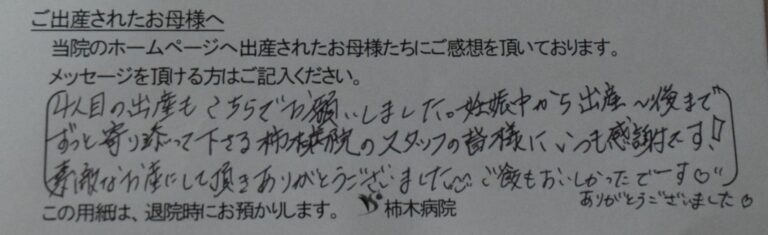 ご出産されたお母様へ
当院のホームページへ出産されたお母様たちにご感想を頂いております。
メッセージを頂ける方はご記入ください。
4人目の出産もこちらでお願いしました。妊娠中から出産〜後まで
ずっと寄り添って下さる柿木病院のスタッフの皆様に、いつも感謝です!!
素敵なお産にして頂きありがとうございました☺ ご飯もおいしかったでーす♡"
ありがとうございました♡
この用紙は、退院時にお預かりします。 柿木病院